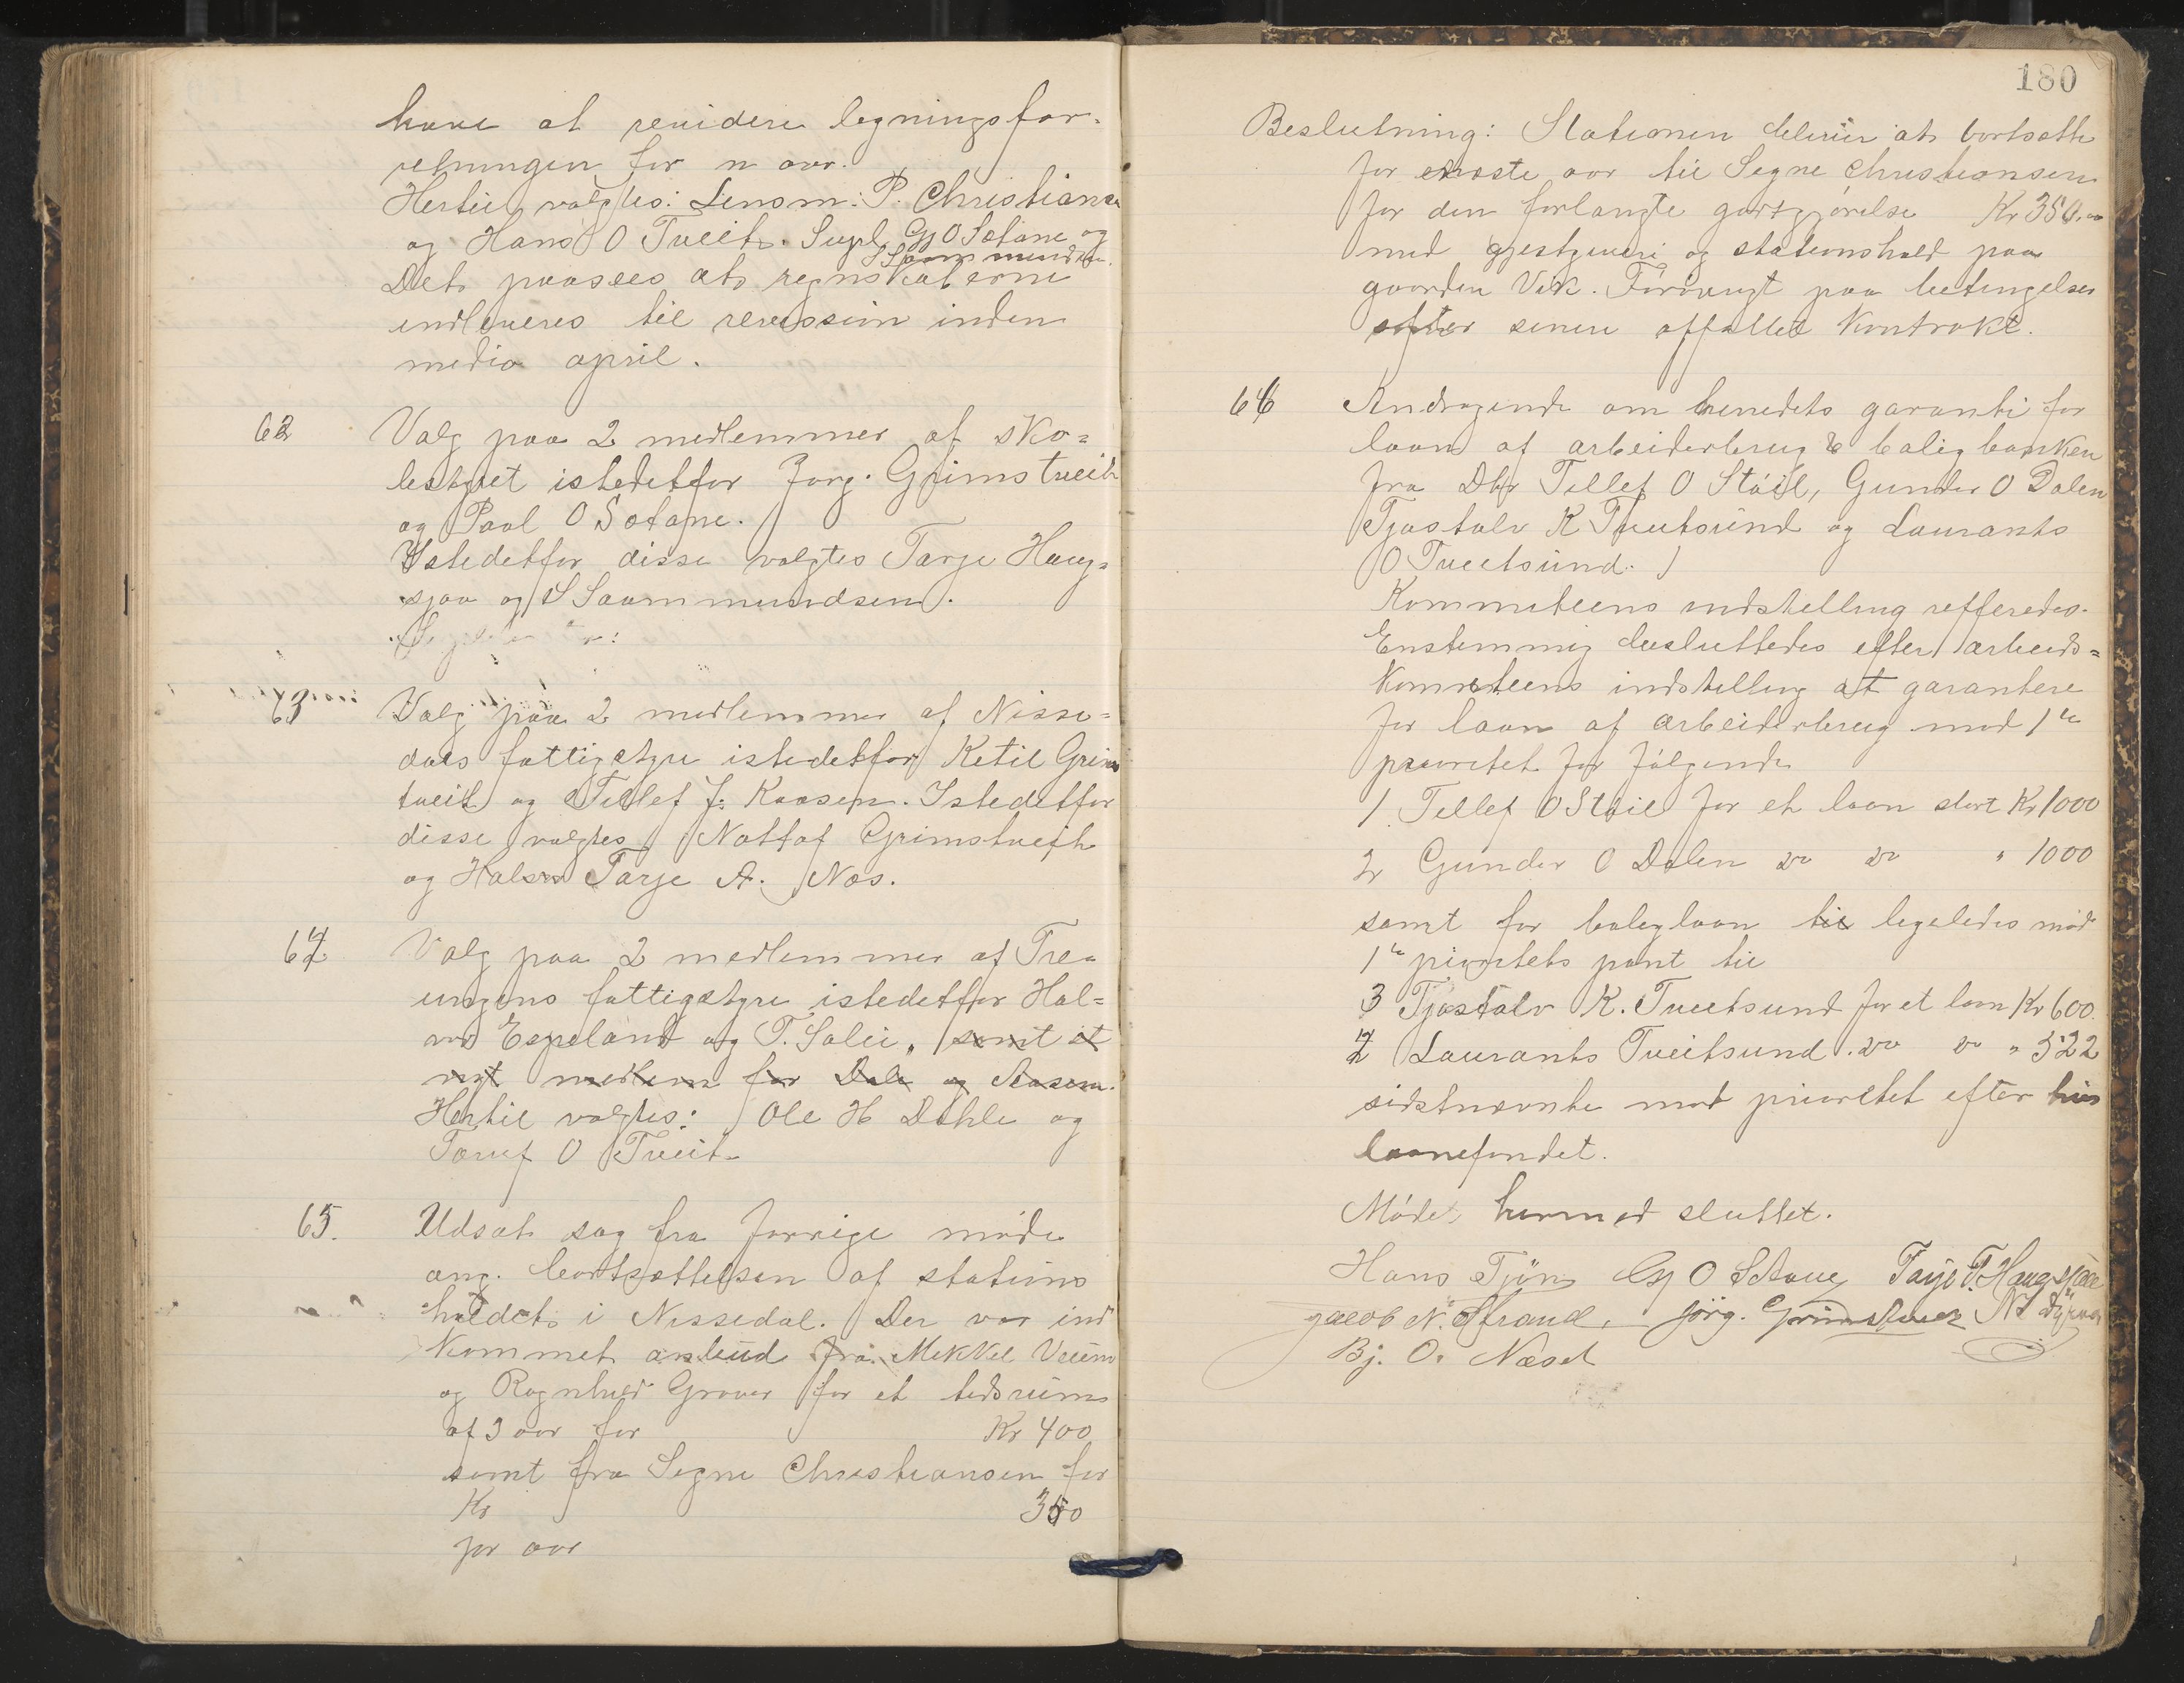 have at revidere legningsfor-
retningen for n aar.
Hertil valgtes: Lensm: P. Christiansen
og Hans O Tveit. Supl. Gj O Sætane og
S Saamundsen.
Det paasees at regnskaberne
indleveres til revission inden
medio april.
62 Valg paa 2 medlemmer af sko=
lestyret istedetfor Jørg. Grimstveit
og Paal O Sætane.
Istedetfor disse valgtes Tarje Haug=
sjaa og S Saammundsen.
63 Valg paa 2 medlemmer af Nisse=
dals fattigstyre istedetfor Ketil Grims
tveit og Tellef J. Kaasen. Istedetfor
disse valgtes Nottof Grimstveit
og Tarje A. Næs.
64 Valg paa 2 medlemmer af Tre=
ungens fattigstyre istedetfor Hal=
vor Espeland og T. Solli, samt et
nyt medlem for Dale og Aasen.
Hertil valgtes: Ole H Dahle og
O Tveit.
65. Udsat sag fra forrige møde
ang. bortsættelsen af stations
holdet i Nissedal. Der var ind
kommet anbud fra Mekkel Veum
og Ragnhild Graver for et tidsrum
af 3 aar for Kr 400
samt fra Signe Christiansen for
Kr 350
for aar
180
Beslutning: Stationen bliver at bortsætte
for næste aar til Signe Christiansen
for den forlangte godtgjørelse Kr 350.00
med gjestgiveri og stationshold paa
gaarden Vik. Forøvrigt paa betingelser
efter senere affattet kontrakt.
66 Andragende om herredets garanti for
laan af arbeiderbrug & boligbanken
fra Dhr Tellef O Støil, Gunder O Dalen
Tjøstolv K Tveitsund og Laurants
O Tveitsund.
Kommiteens indstelling reffereredes.
Enstemmig besluttedes efter arbeids=
komiteens indstelling at garantere
for laan af arbeiderbrug mod 1ste
prioretet for følgende
1 Tellef O Støil for et laan stort Kr 1000
2 Gunder O Dalen do do " 1000
samt for boliglaan til ligeledes mod
1ste prioritets pant til
3 Tjøstolv K. Tveitsund for et laan Kr 600.
4 Laurants Tveitsund. do do " 522
sidstnævnte mod prioritet efter
laanefondet.
Mødet hermed sluttet.
Hans Tjøn Gj O Sætane Tarje T. Haugsjaae
Jacob N. Strand, Jørg. Grimstveit
Bj. O. Næset